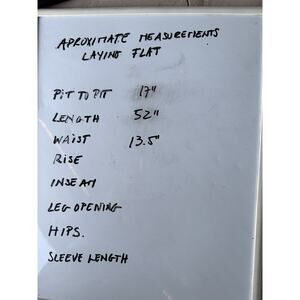 APROXIMATE MEASUREMENTS
LAYING FLAT
PIT TO PIT 17"
LENGTH 52"
WAIST 13.5"
RISE
INSEAM
LEG OPENING
HIPS.
SLEEVE LENGTH